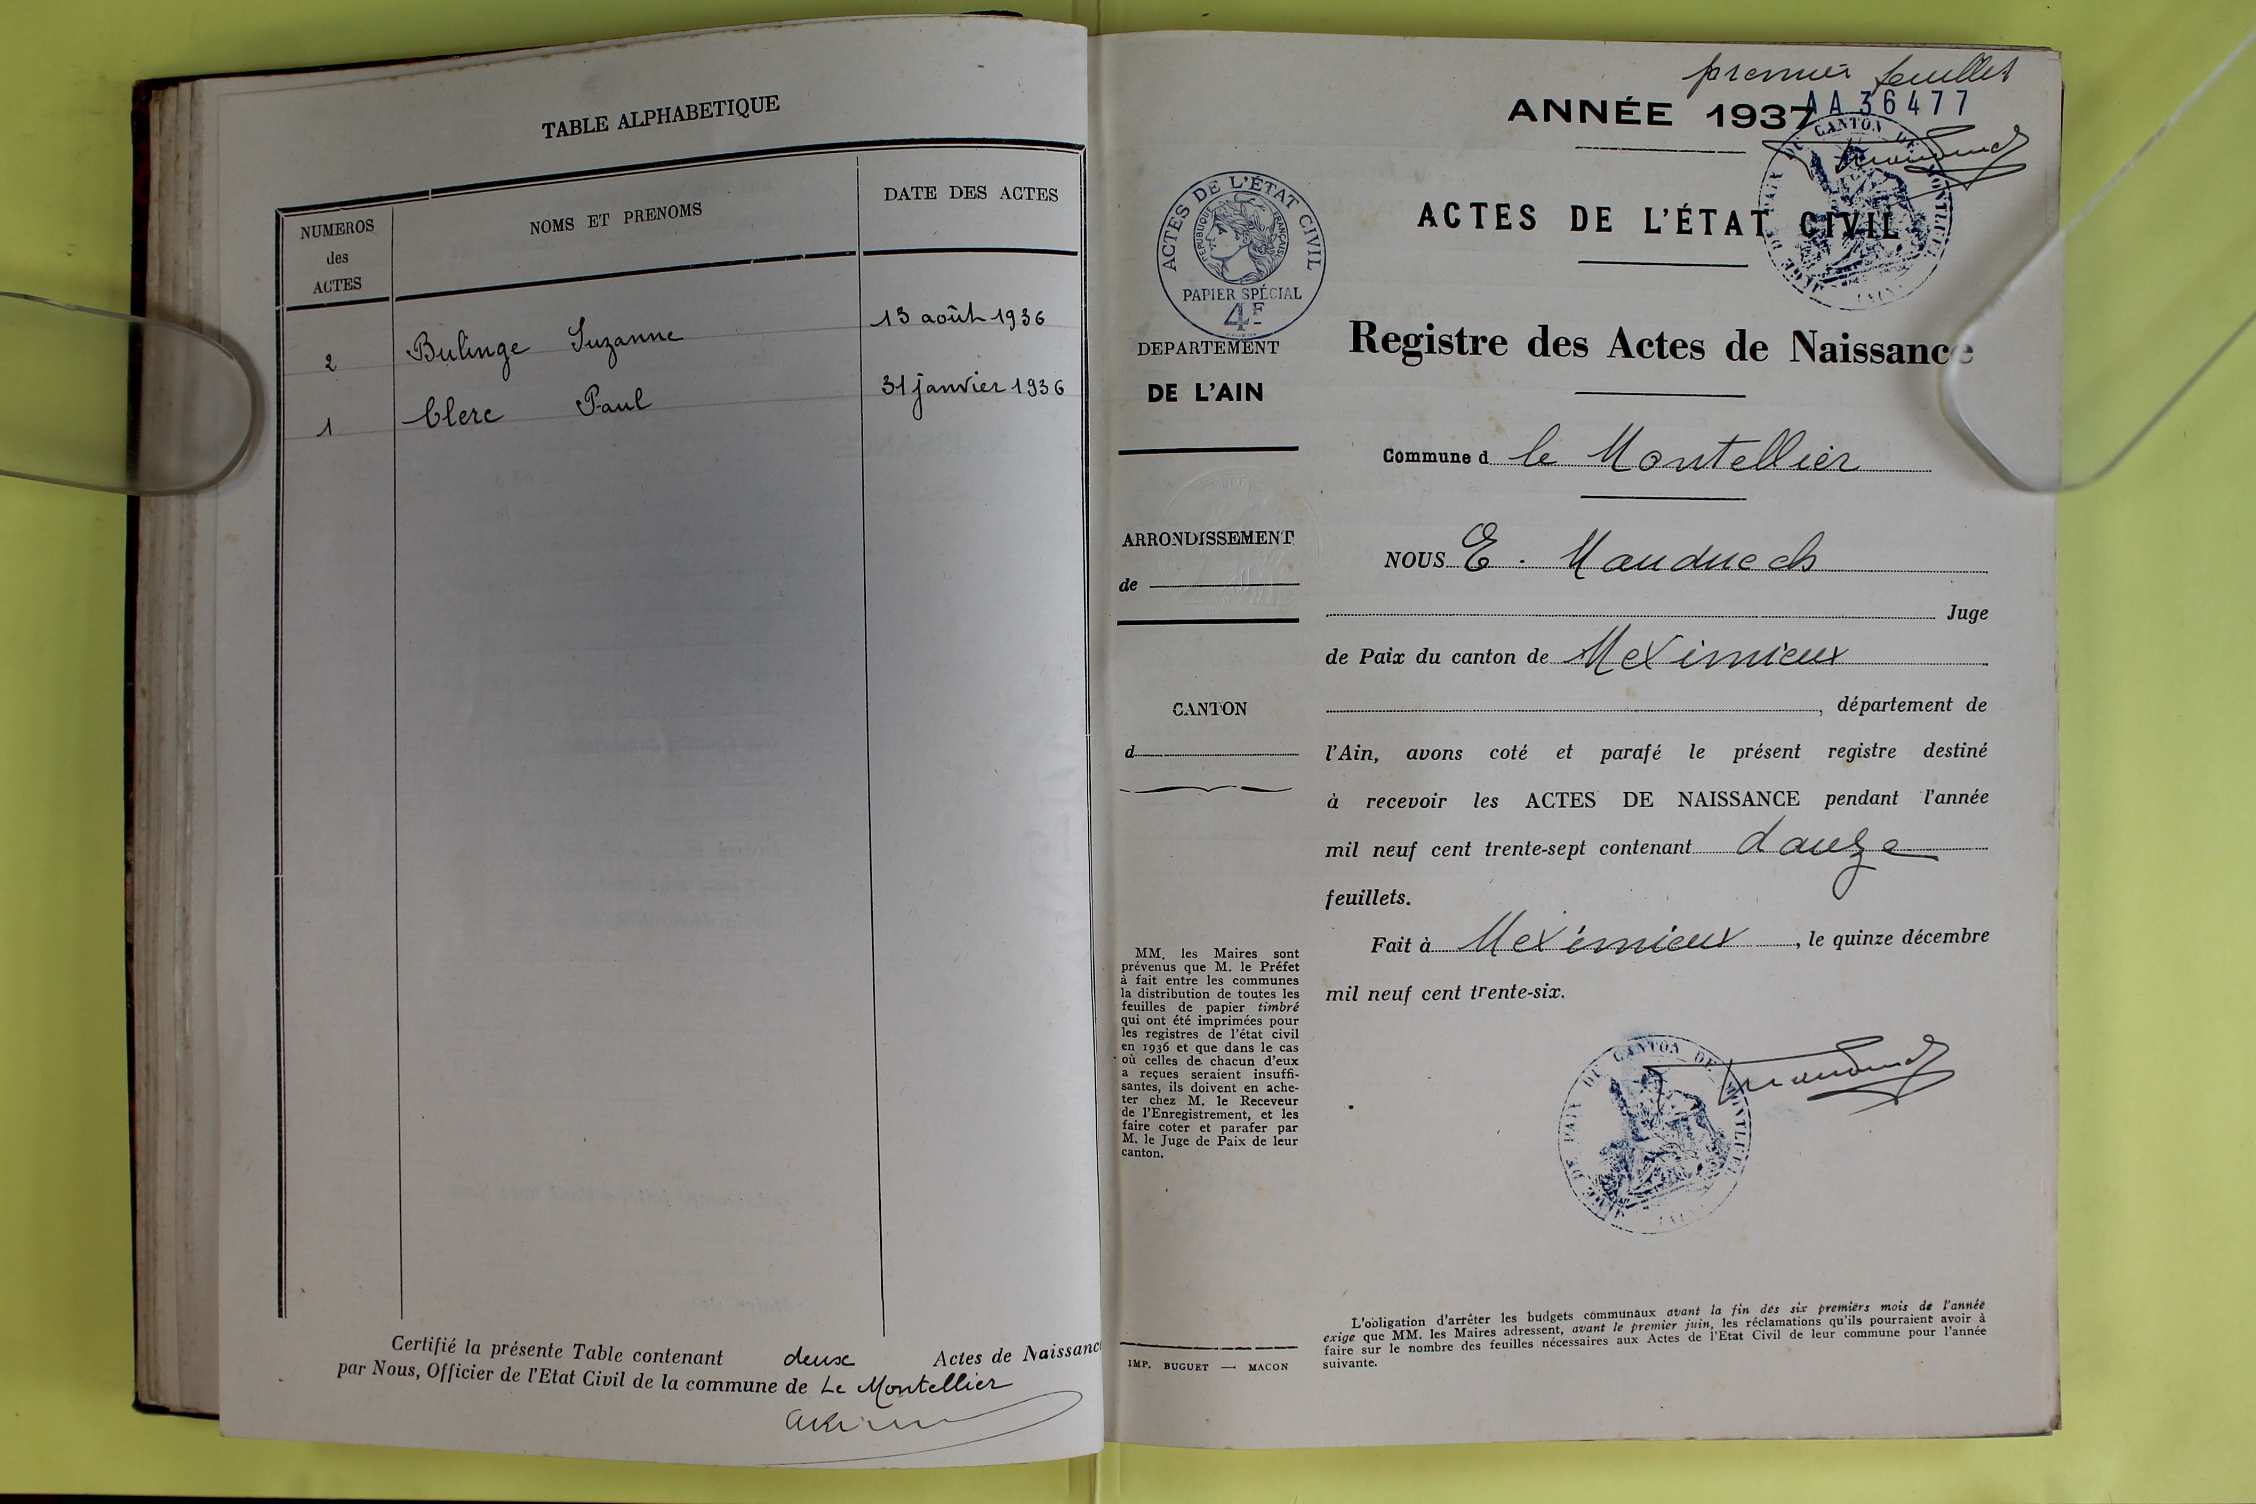 TABLE ALPHABETIQUE
NUMEROS
des
ACTES
NOMS ET PRENOMS
DATE DES ACTES
2 Bulinge Suzanne 13 août 1936
1 Clerc Paul 31 janvier 1936
Certifié la présente Table contenant deux Actes de Naissance
par Nous, Officier de l'Etat Civil de la commune de Le Montellier
premier feuillet
ANNÉE 1937
AA 36477
ACTES DE L'ÉTAT CIVIL
JUGE DE PAIX DU CANTON DE MONTLUEL
(AIN)
ACTES DE L'ÉTAT CIVIL
RÉPUBLIQUE FRANÇAISE
PAPIER SPÉCIAL
4F
DEPARTEMENT
DE L'AIN
ARRONDISSEMENT
de
CANTON
d
MM. les Maires sont
prévenus que M. le Préfet
à fait entre les communes
la distribution de toutes les
feuilles de papier timbré
qui ont été imprimées pour
les registres de l'état civil
en 1936 et que dans le cas
où celles de chacun d'eux
a reçues seraient insuffi-
santes, ils doivent en ache-
ter chez M. le Receveur
de l'Enregistrement, et les
faire coter et parafer par
M. le Juge de Paix de leur
canton.
IMP. BUGUET — MACON
Registre des Actes de Naissance
Commune d le Montellier
NOUS E.
Juge
de Paix du canton de Meximieux
, département de
l'Ain, avons coté et parafé le présent registre destiné
à recevoir les ACTES DE NAISSANCE pendant l'année
mil neuf cent trente-sept contenant douze
feuillets.
Fait à Meximieux, le quinze décembre
mil neuf cent trente-six.
JUGE DE PAIX DU CANTON DE MONTLUEL
(AIN)
L'obligation d'arrêter les budgets communaux avant la fin des six premiers mois de l'année
exige que MM. les Maires adressent, avant le premier juin, les réclamations qu'ils pourraient avoir à
faire sur le nombre des feuilles nécessaires aux Actes de l'Etat Civil de leur commune pour l'année
suivante.